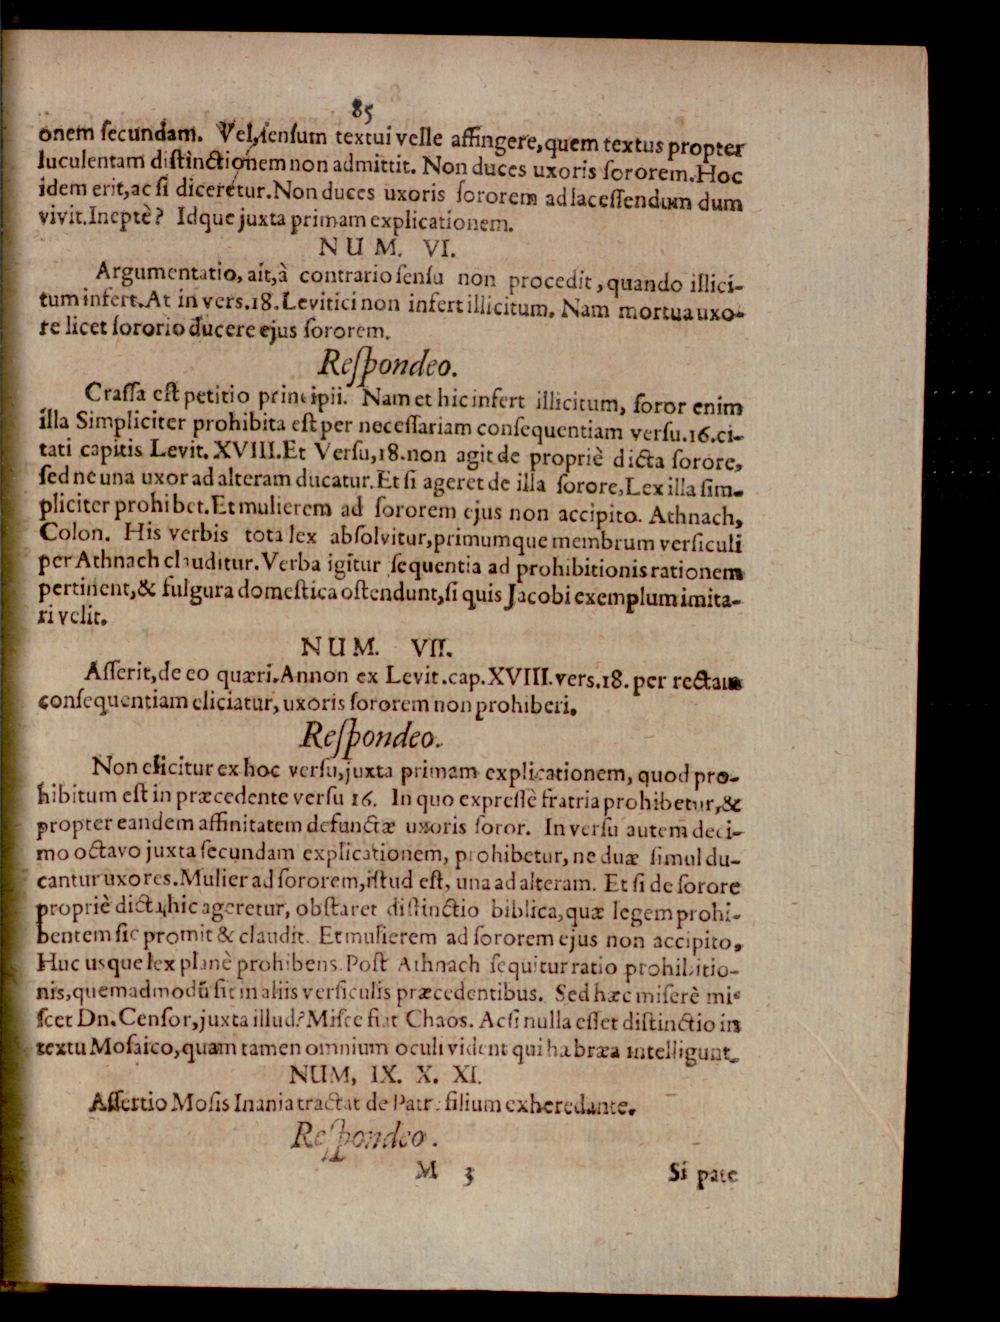 85
onem secundam. Vel, sensum textui velle affingere, quem textus propter
luculentam distinctionem non admittit. Non duces uxoris sororem. Hoc
idem erit, ac si diceretur. Non duces uxoris sororem ad lacessendum dum
vivit. Ineptè? Idque juxta primam explicationem.
NUM. VI.
Argumentatio, ait, à contrario sensu non procedit, quando illici-
tum infert. At in vers. 18. Levitici non infert illicitum. Nam mortua uxo-
re licet sororio ducere ejus sororem.
Respondeo.
Crassa est petitio principii. Nam et hic infert illicitum, soror enim
illa Simpliciter prohibita est per necessariam consequentiam versu. 16. ci-
tati capitis Levit. XVIII. Et Versu, 18. non agit de propriè dicta sorore,
sed ne una uxor ad alteram ducatur. Et si ageret de illa sorore, Lex illa sim-
pliciter prohibet. Et mulierem ad sororem ejus non accipito. Athnach,
Colon. His verbis tota lex absolvitur, primumque membrum versiculi
per Athnach clauditur. Verba igitur sequentia ad prohibitionis rationem
pertinent, & fulgura domestica ostendunt, si quis Jacobi exemplum imita-
ri velit.
NUM. VII.
Asserit, de eo quæri. Annon ex Levit. cap. XVIII. vers. 18. per rectam
consequentiam eliciatur, uxoris sororem non prohiberi.
Respondeo.
Non elicitur ex hoc versu, juxta primam explicationem, quod pro-
hibitum est in præcedente versu 16. In quo expressè fratria prohibetur, &
propter eandem affinitatem defunctæ uxoris soror. In versu autem deci-
mo octavo juxta secundam explicationem, prohibetur, ne duæ simul du-
cantur uxores. Mulier ad sororem, istud est, una ad alteram. Et si de sorore
propriè dicta, hic ageretur, obstaret distinctio biblica, quæ legem prohi-
bentem sic promit & claudit. Et mulierem ad sororem ejus non accipito,
Huc usque lex planè prohibens. Post Athnach sequitur ratio prohibitio-
nis, quemadmodũ fit in aliis versiculis præcedentibus. Sed hæc miserè mi-
scet Dn. Censor, juxta illud: Misce fiat Chaos. Ac si nulla esset distinctio in
textu Mosaico, quam tamen omnium oculi vident qui habræa intelligunt.
NUM, IX. X. XI.
Assertio Mosis Inania tractat de Patre filium exheredante.
Respondeo.
M 3 Si pate